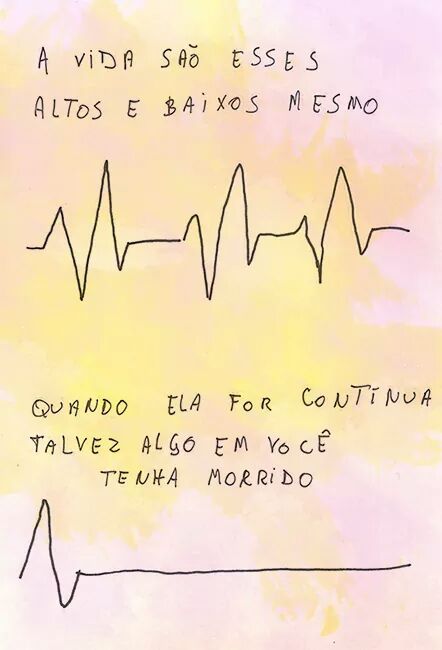 A VIDA SÃO ESSES
ALTOS E BAIXOS MESMO
QUANDO ELA FOR CONTÍNUA
TALVEZ ALGO EM VOCÊ
TENHA MORRIDO